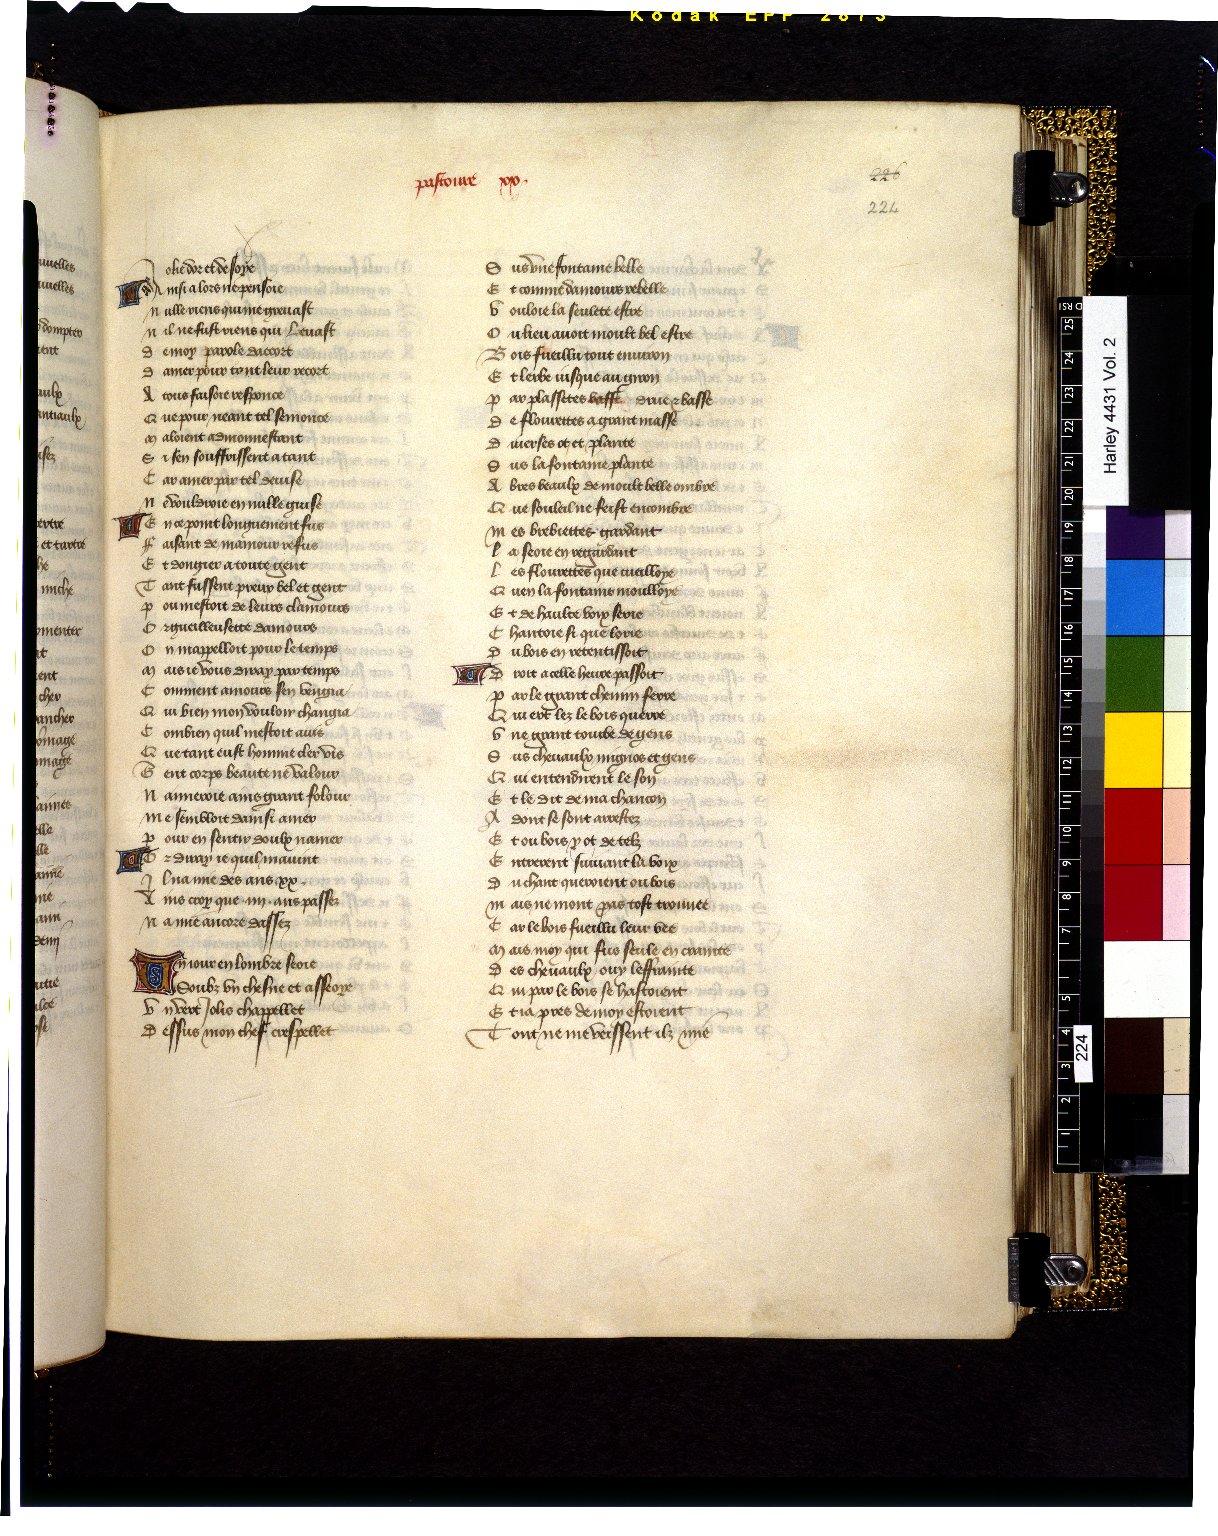 Kodak EPP 2873
pastoure xx.
226
224
Jolie dor et de soye
Ainsi alors ne pensoie
Nulle riens qui me grevast
Nil ne fust riens qui levast
De moy parole dacort
Damer pour tout leur recort
A tous faisoie responce
Que pour neant tel semonce
Maloient admonnestant
Si sen souffrissent a tant
Car amer par tel devise
Ne vouldroie en nulle guise
En ce point longuement fus
Faisant de mamour refus
Et dongier a toute gent
Tant fussent preux bel et gent
Pou mestoit de leurs clamours
Orgueilleusette damours
On mappelloit pour le temps
Mais ie vous diray par temps
Comment amours sen venga
Qui bien mon vouloir changia
Combien quil mestoit avis
Que tant eust homme cler vis
Gent corps beaute ne valour
Nameroie ains grant folour
Me sembloit dainsi amer
Pour en sentir doulx namer
Or diray ie quil mavint
Il na mie des ans xx.
Ains croy que .iiii. ans passez
Na mie ancore dassez
Un iour en lombre seoie
Soubz un chesne et asseoye
Un vert jolis chappellet
Dessus mon chef crespellet
Sus une fontaine belle
Et comme damours rebelle
Vouloie la seulete estre
Ou lieu avoit moult bel estre
Bois fueillu tout environ
Et lerbe iusque au giron
Par plassetes basse drue et basse
De flourettes a grant masse
Diverses ot et plante
Sus la fontaine plante
Abres beaulx de moult belle ombre
Que souleil ne feist encombre
Mes brebiettes gardant
La seoie en regardant
Les flourettes que cueilloye
Quen la fontaine moulloye
Et de haulte voix serie
Chantoie si que lorie
Du bois en retentissoit
Droit a celle heure passoit
Par le grant chemin ferre
Qui ert lez le bois querre
Une grant tourbe de gens
Sus chevaulx mignos et gens
Qui entendirent le son
Et le dit de ma chancon
A dont se sont arrestez
Et ou bois y ot de telz
Entrerent suivant la voix
Du chant que oient ou bois
Mais ne mont pas tost trouvee
Car le bois fueillu leur vee
Mais moy qui fus seule en crainte
Des chevaulx ouy leffrainte
Qui par le bois se hastoient
Et ia pres de moy estoient
Tout ne me veissent ilz mie
Harley 4431 Vol. 2
224